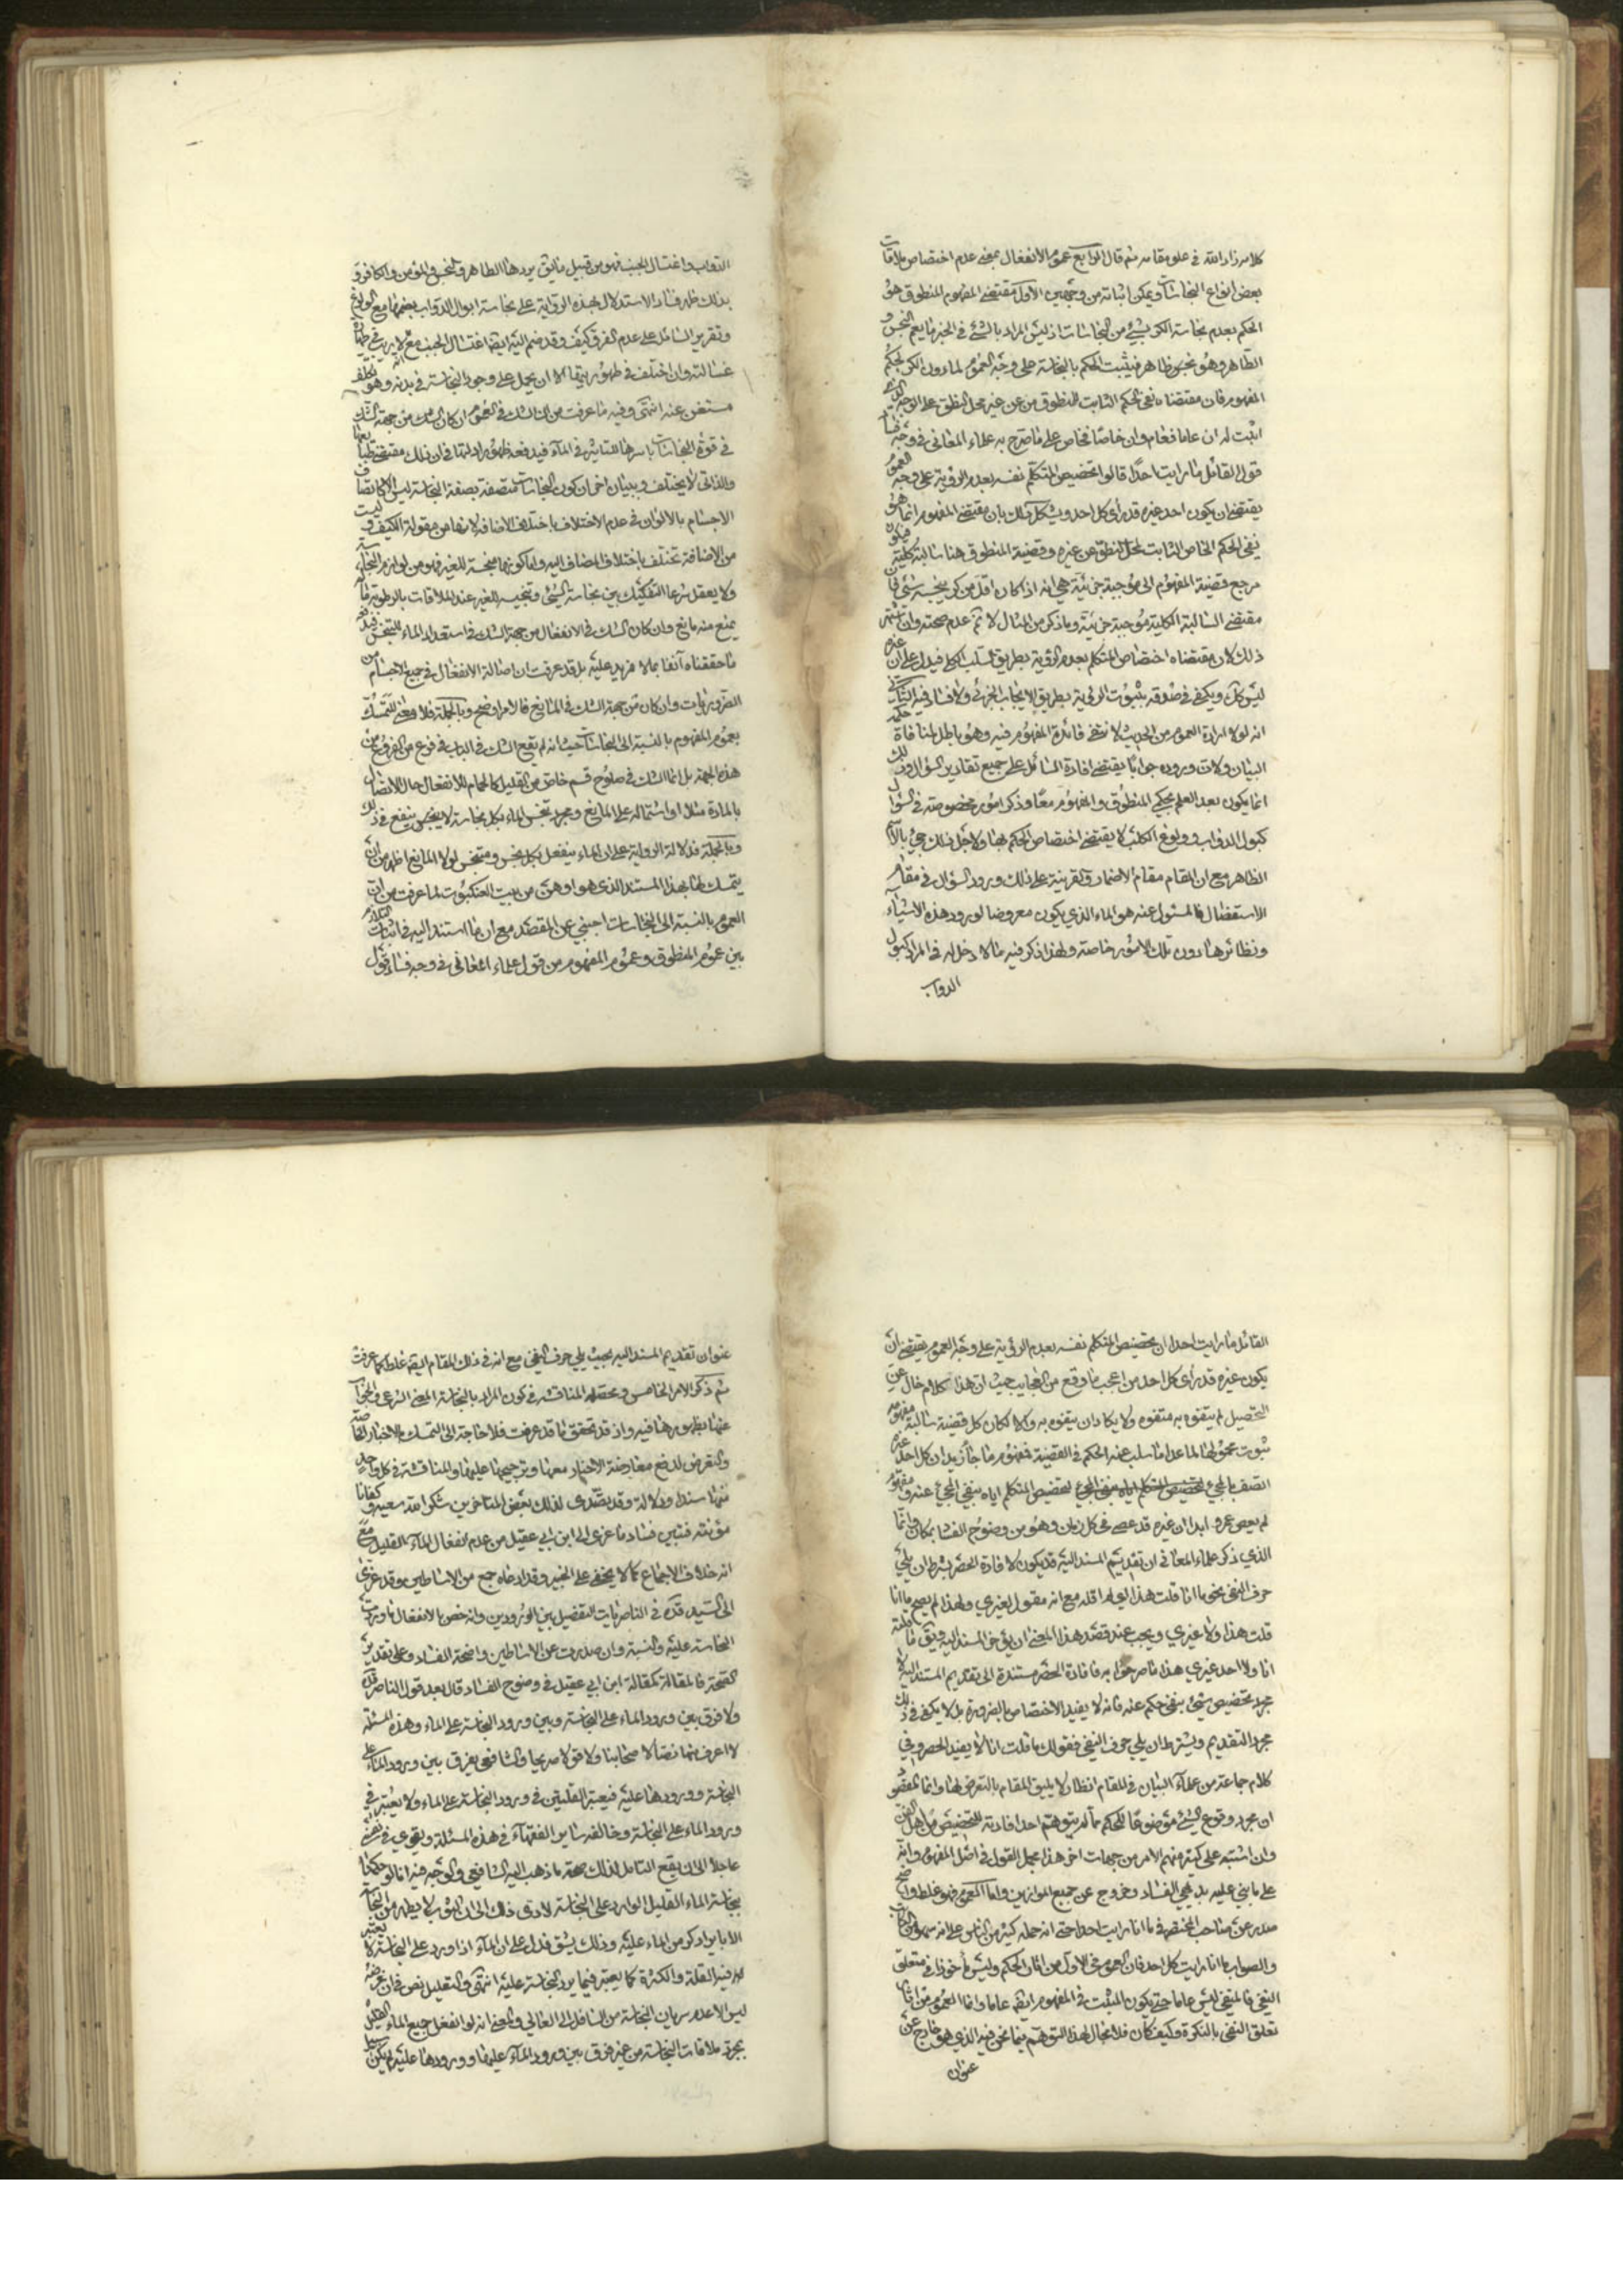 كلامه زاد الله في علو مقامه ثم قال الرابع عموم الانفعال بمعنى عدم اختصاصه بملاقات
بعض انواع النجاسات ويمكن اثباته من وجهين الاول مقتضى المفهوم المنطوق هو
الحكم بعدم نجاسة الكر بشيء من النجاسات اذ ليس المراد بالشيء في الخبر ما يعم النجس و
الطاهر وهو نجس ظاهر فيثبت الحكم بالنجاسة على وجه العموم لما دون الكر لحكم
المفهوم فان مقتضاه نفي الحكم الثابت للمنطوق من عن غير محل النطق على الوجه الذي
اثبت له ان عاما فعام وان خاصا فخاص على ما صرح به علماء المعاني في وجه فساد
قول القائل ما رايت احدا قالوا تخصيص المتكلم نفسه بعدم الرؤية على وجه العموم
يقتضي ان يكون احد غيره قد رأى كل احد ويشكل ذلك بان مقتضى المفهوم انما هو
نفي الحكم الخاص الثابت لمحل النطق عن غيره وقضية المنطوق هنا سالبة كلية فيكون
مرجع قضية المفهوم الى موجبة جزئية هي انه اذا كان اقل من كر ينجسه شيء فان
مقتضى السالبة الكلية موجبة جزئية وما ذكر من المثال لا ثم عدم صحته وان اشتهر
ذلك لان مقتضاه اختصاص المتكلم بعدم الرؤية بطريق السلب الكلي فيدل على ان غيره
ليس كك ويكفي في صدقه ثبوت الرؤية بطريق الايجاب الجزئي ولا فساد فيه الثاني
انه لولا ارادة العموم من الحديث لانتفى فائدة المفهوم فيه وهو باطل لمنافاة حكمة
البيان ولان وروده جوابا يقتضي افادة السائل على جميع تقادير السؤال وذلك
انما يكون بعد العلم بحكمي المنطوق والمفهوم معا وذكر امور مخصوصة في السؤال
كبول الدواب وولوغ الكلب لا يقتضي اختصاص الحكم بها ولاجل ذلك جيء بالاسم
الظاهر مع ان المقام مقام الاضمار والقرينة على ذلك ورود السؤال في مقام
الاستفصال فالمسئول عنه هو الماء الذي يكون معروضا لورود هذه الاشياء
ونظائرها دون تلك الامور خاصة ولهذا ذكر فيه ما لا دخل له في المراد كبول
الدواب
الدواب واغتسال الجنب فهو من قبيل ما يق يرد هنا الطاهر والنجس والمؤمن والكافر و
بذلك ظهر فساد الاستدلال بهذه الرواية على نجاسة ابوال الدواب بضمها مع الولوغ
وتقرير السائل على عدم الفرق كيف وقد ضم اليه ايضا اغتسال الجنب مع انه لا ريب في طهارة
غسالته وان اختلف في طهوريتها الا ان يحمل على وجود النجاسة في بدنه وهو تكلف
مستغنى عنه انتهى وفيه ما عرفت من ان الشك في العموم ان كان الشك من جهة الشك
في قوة النجاسات باسرها للتاثير في الماء فيدفعه ظهور ادلتها في ان ذلك مقتضى طباعها
والذاتي لا يختلف وببيان اخر ان كون النجاسات متصفة بصفة النجاسة ليس الا كاتصاف
الاجسام بالالوان في عدم الاختلاف باختلاف الاضافة لانها من مقولة الكيف وليست
من الاضافة تختلف باختلاف المضاف اليه واما كونها منجسة للغير فهو من لوازم النجاسة
ولا يعقل شرعا التفكيك بين نجاسة الشيء وتنجيسه للغير عند الملاقات بالرطوبة ما لم
يمنع منه مانع وان كان الشك في الانفعال من جهة الشك في استعداد الماء للتنجس فيدفعه
ما حققناه آنفا بما لا مزيد عليه بل قد عرفت ان اصالة الانفعال في جميع الاجسام من
الضروريات وان كان من جهة الشك في المانع فالامر اوضح وبالجملة فلا معنى للتمسك
بعموم المفهوم بالنسبة الى النجاسات حيث انه لم يقع الشك في الباب في فرع من الفروع من
هذه الجهة بل انما الشك في صلوح قسم خاص من القليل كالحمام للانفعال حال الاتصال
بالمادة مثلا او اشتماله على المانع ومجرد تنجس الماء بكل نجاسة لا يخص ينفع في ذلك
وبالجملة فدلالة الرواية على ان الماء ينفعل بكل نجس ومتنجس لولا المانع اظهر من ان
يتمسك لها بهذا المستند الذي هو اوهن من بيت العنكبوت لما عرفت من ان
العموم بالنسبة الى النجاسات اجنبي عن المقصد مع ان ما استند اليه في اثبات التلازم
بين عموم المنطوق وعموم المفهوم من قول علماء المعاني في وجه فساد قول
القائل ما رايت احدا ان تخصيص المتكلم نفسه بعدم الرؤية على وجه العموم يقتضي ان
يكون غيره قد رأى كل احد من اعجب ما وقع من العجايب حيث ان هذا كلام خال عن
التحصيل لم يتفوه به متفوه ولا يكاد ان يتفوه به والا لكان كل قضية سالبة مفهومه
ثبوت عمومها لما عدا ما سلب عنه الحكم في القضية فمفهوم ما جاء زيد ان كل احد غيره
اتصف بالمجيء لتخصيص المتكلم اياه بنفي المجيء عنه ومفهوم
لم يعص عمرو ابدا ان غيره قد عصى في كل زمان وهو من وضوح الفساد بمكان وانما
الذي ذكر علماء المعاني ان تقديم المسند اليه قد يكون لافادة الحصر بشرط ان يلي
حرف النفي نحو ما انا قلت هذا اي لم اقله مع انه مقول لغيري ولهذا لم يصح ما انا
قلت هذا ولا غيري ويجب عند قصد هذا المعنى ان يؤخر المسند اليه ويق ما قلته
انا ولا احد غيري هذا ما صرحوا به فافادة الحصر مستندة الى تقديم المسند اليه لا
مجرد تخصيص شيء بنفي حكم عنه فانه لا يفيد الاختصاص بالضرورة بل لا يكفي في ذلك
مجرد التقديم ويشترط ان يلي حرف النفي فقولك ما قلت انا لا يفيد الحصر وفي
كلام جماعة من علماء البيان في المقام انظار لا يليق المقام بالتعرض لها وانما المقصود
ان مجرد وقوع الشيء موضوعا للحكم مما لم يتوهم احد افادته للتخصيص من اهل الفن
وان اشتبه على كثير منهم الامر من جهات اخر هذا مجمل القول في اصل المفهوم وانه
على ما بني عليه بديهي الفساد وخروج عن جميع الموازين واما العموم فهو غلط واضح
صدر عن صاحب المختصر في ما انا رايت احدا حتى انه حمله كثير من الناس على انه سهو من الكاتب
والصواب ما انا رايت كل احد فان العموم في الاول من اثار الحكم وليس مأخوذا في متعلق
النفي فالمنفي ليس عاما حتى يكون المثبت في المفهوم ايضا عاما وانما العموم من اثار
تعلق النفي بالنكرة وكيف كان فلا مجال لهذا التوهم فيما نحن فيه الذي هو خارج عن
عنوان
عنوان تقديم المسند اليه بحيث يلي حرف النفي مع انه في ذلك المقام ايضا غلط كما عرفت
ثم ذكر الامر الخامس ومحصله المناقشة في كون المراد بالنجاسة المعنى الشرعي والجواب
عنها بظهورها فيه واذ قد تحقق ما قد عرفت فلا حاجة الى التمسك بالاخبار الخاصة
والتعرض لدفع معارضة الاخبار معها وترجيحها عليها والمناقشة في كل واحد
منها سندا ودلالة وقد تصدى لذلك بعض المتاخرين شكر الله سعيه وكفانا
مؤنته فتبين فساد ما عزى الى ابن ابي عقيل من عدم انفعال الماء القليل مع
انه خلاف الاجماع كما لا يخفى على الخبير وقد ادعاه جمع من الاساطين وقد عزى
الى السيد قده في الناصريات التفصيل بين الورودين وانه خص الانفعال بما وردت
النجاسة عليه والنسبة وان صدرت عن الاساطين واضحة الفساد وعلى تقدير
الصحة فالمقالة كمقالة ابن ابي عقيل في وضوح الفساد قال بعد قول الناصر قده
ولا فرق بين ورود الماء على النجاسة وبين ورود النجاسة على الماء وهذه المسئلة
لا اعرف فيها نصا لاصحابنا ولا قولا صريحا والشافعي يفرق بين ورود الماء على
النجاسة وورودها عليه فيعتبر القلتين في ورود النجاسة على الماء ولا يعتبر في
ورود الماء على النجاسة وخالفه سائر الفقهاء في هذه المسئلة ويقوى في نفسي
عاجلا الى ان يقع التامل لذلك صحة ما ذهب اليه الشافعي والوجه فيه انا لو حكمنا
بنجاسة الماء القليل الوارد على النجاسة لادى ذلك الى ان الثوب لا يطهر من النجاسة
الا بايراد كر من الماء عليه وذلك يشق فدل على ان الماء اذا ورد على النجاسة لا يعتبر
فيه القلة والكثرة كما يعتبر فيما يرد النجاسة عليه انتهى والتعليل نص في ان غرضه
ليس الا عدم سريان النجاسة من السافل الى العالي والمعنى انه لو انفعل جميع الماء القليل
بمجرد ملاقات النجاسة من غير فرق بين ورود الماء عليها وورودها عليه لم يكن